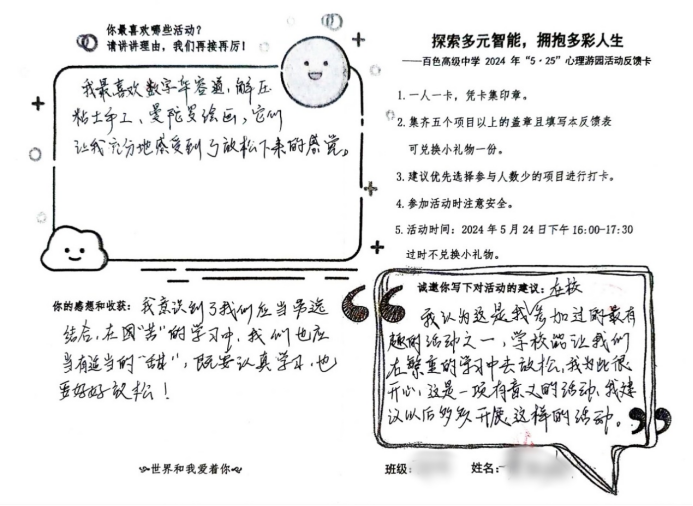 你最喜欢哪些活动？
请讲讲理由，我们再接再厉！
我最喜欢数字华容道、解压
粘土手工、曼陀罗绘画，它们
让我充分地感受到了放松下来的感觉。
你的感想和收获：我意识到了我们应当劳逸
结合，在因“苦”的学习中，我们也应
当有适当的“甜”，既要认真学习，也
要好好放松！
๛世界和我爱着你๛
探索多元智能，拥抱多彩人生
——百色高级中学 2024 年“5·25”心理游园活动反馈卡
1.一人一卡，凭卡集印章。
2.集齐五个项目以上的盖章且填写本反馈表
可兑换小礼物一份。
3.建议优先选择参与人数少的项目进行打卡。
4.参加活动时注意安全。
5.活动时间：2024 年 5 月 24 日下午 16:00-17:30
过时不兑换小礼物。
诚邀你写下对活动的建议：在校
我认为这是我参加过的最有
趣的活动之一，学校能让我们
在繁重的学习中去放松，我为此很
开心，这是一项有意义的活动，我建
议以后多多开展这样的活动。
班级： 姓名：